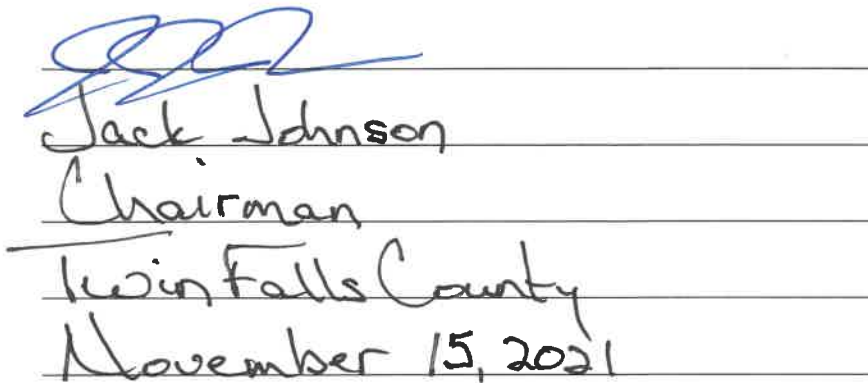 Jack Johnson
Chairman
Twin Falls County
November 15, 2021